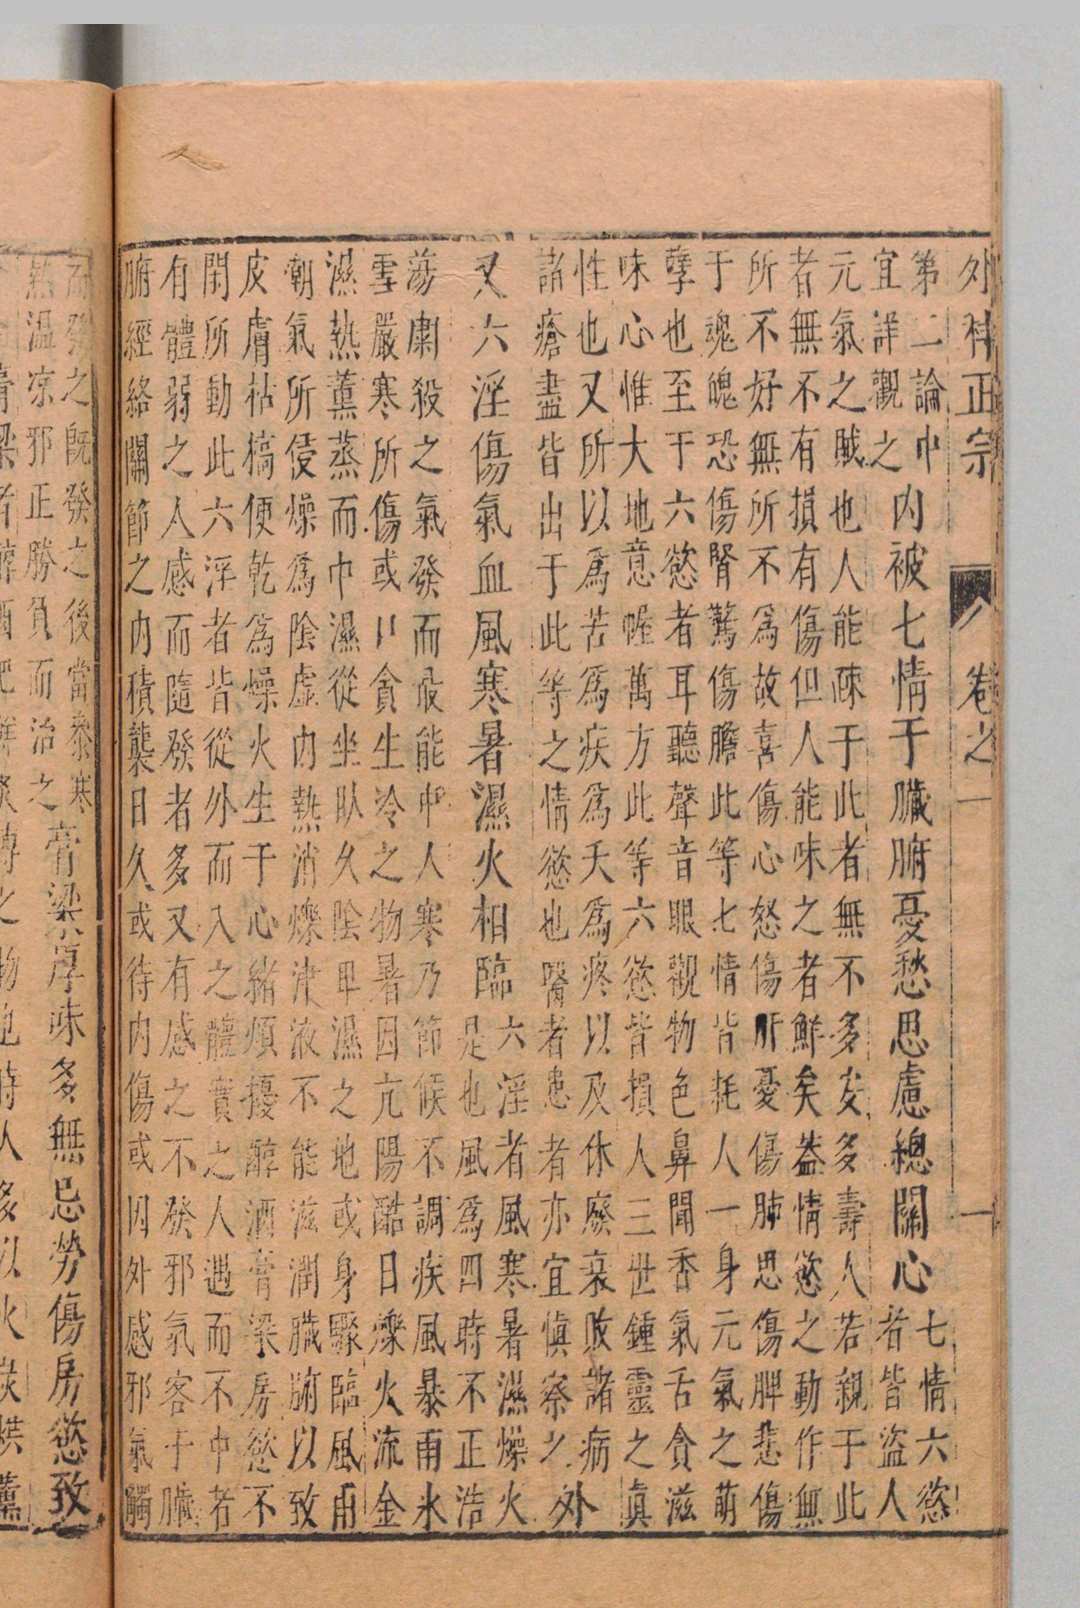 外科正宗 卷之一 一
第二論中
宜詳觀之
內被七情于臟腑憂愁思慮總關心
七情六慾
者皆盜人
元氣之賊也人能疎于此者無不多安多壽人若親于此
者無不有損有傷但人能味之者鮮矣葢情慾之動作無
所不好無所不為故喜傷心怒傷肝憂傷肺思傷脾悲傷
于魂魄恐傷腎驚傷膽此等七情皆耗人一身元氣之萌
孽也至于六慾者耳聽聲音眼觀物色鼻聞香氣舌貪滋
味心惟大地意幄萬方此等六慾皆損人三世鍾靈之真
性也又所以為苦為疾為夭為疼以及休廢衰敗諸病
諸瘡盡皆出于此等之情慾也醫者患者亦宜慎察之
外又六淫傷氣血風寒暑濕火相臨
六淫者風寒暑濕燥火
是也風為四時不正浩
蕩肅殺之氣發而最能中人寒乃節候不調疾風暴雨氷
雪嚴寒所傷或口貪生冷之物暑因亢陽酷日爍火流金
濕熱薰蒸而中濕從坐臥久陰卑濕之地或身驟臨風雨
朝氣所侵燥為陰虛內熱消爍津液不能滋潤臟腑以致
皮膚枯槁便乾為燥火生于心緒煩擾醇酒膏粱房慾不
閑所動此六淫者皆從外而入之體實之人遇而不中者
有體弱之人感而隨發者多又有感之不發邪氣客于臟
腑經絡關節之內積襲日久或待內傷或因外感邪氣觸
而發之既發之後當叅寒
熱溫凉邪正勝負而治之
膏粱厚味多無忌勞傷房慾致